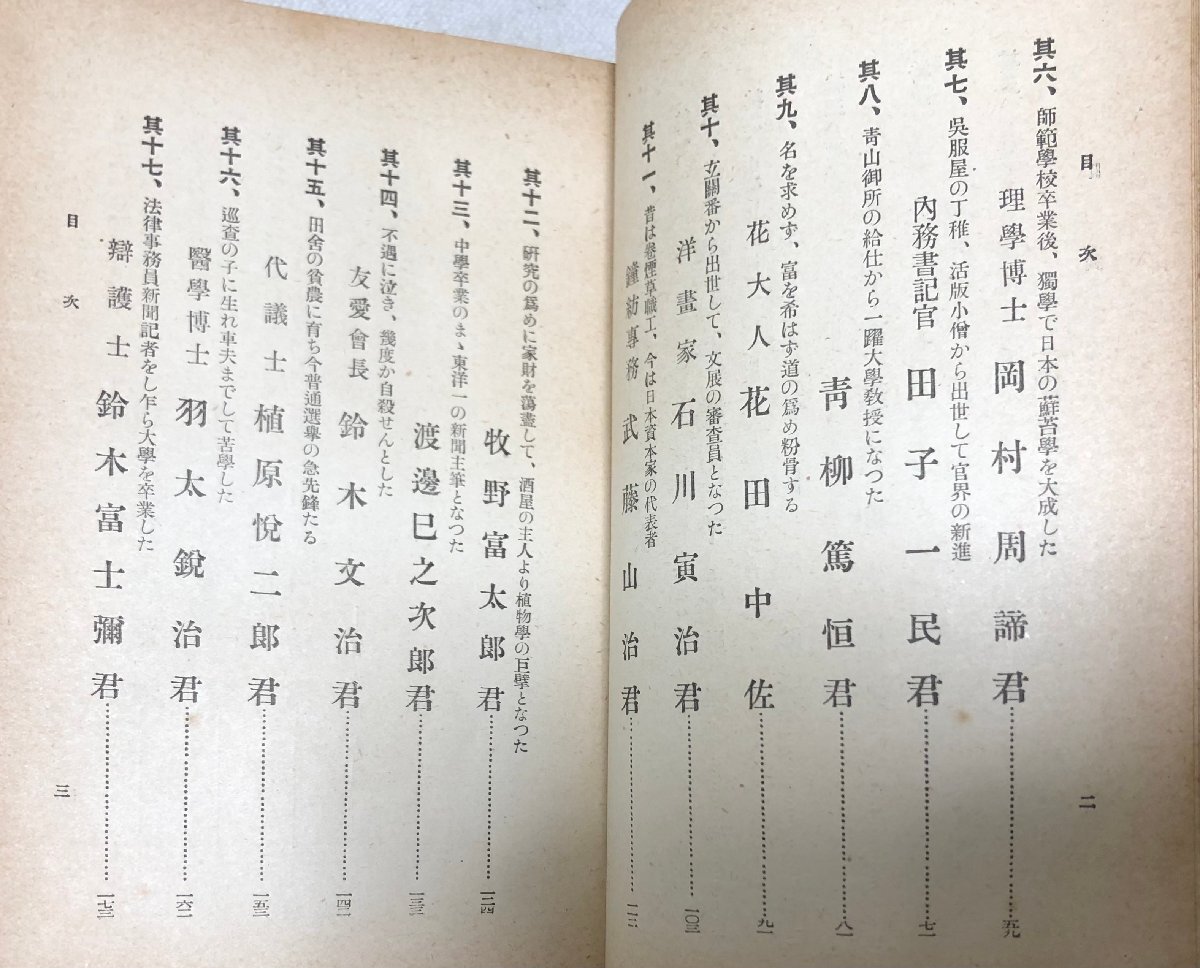 目次
其六、師範學校卒業後、獨學で日本の蘚苔學を大成した
理學博士 岡村周諦君……五九
其七、吳服屋の丁稚、活版小僧から出世して官界の新進
內務書記官 田子一民君……七一
其八、靑山御所の給仕から一躍大學敎授になつた
靑柳篤恒君……八一
其九、名を求めず、富を希はず道の爲め粉骨する
花大人 花田中佐……九一
其十、玄關番から出世して、文展の審査員となつた
洋畫家 石川寅治君……一〇三
其十一、昔は卷煙草職工、今は日本資本家の代表者
鐘紡專務 武藤山治君……一一三
二
其十二、硏究の爲めに家財を蕩盡して、酒屋の主人より植物學の巨擘となつた
牧野富太郎君……一二四
其十三、中學卒業のまゝ東洋一の新聞主筆となつた
渡邊巳之次郎君……一三三
其十四、不遇に泣き、幾度か自殺せんとした
友愛會長 鈴木文治君……一四二
其十五、田舍の貧農に育ち今普通選擧の急先鋒たる
代議士 植原悅二郎君……一五三
其十六、巡査の子に生れ車夫までして苦學した
醫學博士 羽太銳治君……一六二
其十七、法律事務員新聞記者をし乍ら大學を卒業した
辯護士 鈴木富士彌君……一七三
目次
三